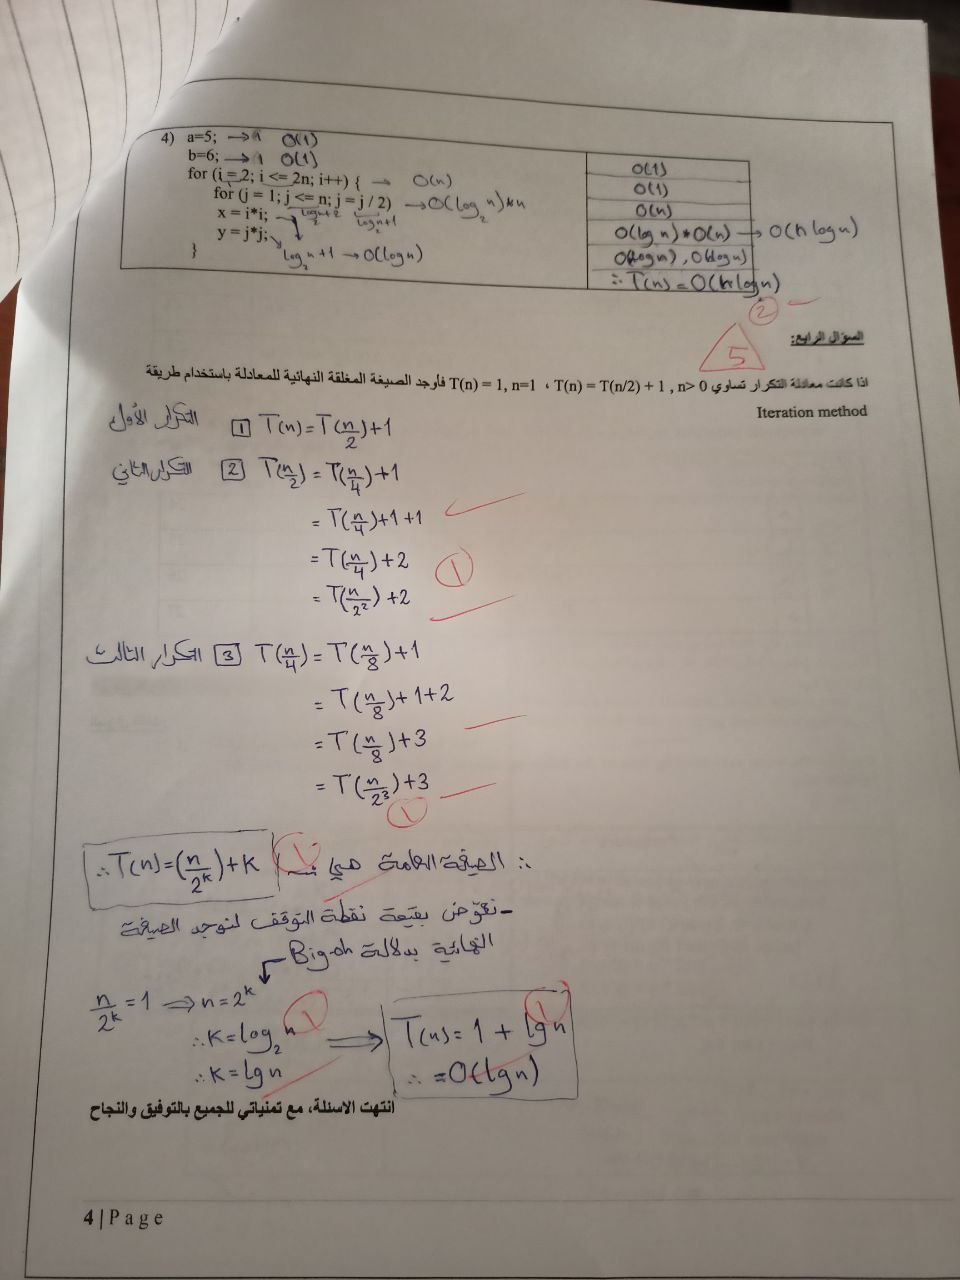 4) a=5; → 1 O(1)
b=6; → 1 O(1)
for (i = 2; i <= 2n; i++) { → O(n)
for (j = 1; j <= n; j = j / 2) → O(log₂ n)*n
log₂n+2 log₂n+1
x = i*i;
y = j*j;
log₂n+1 → O(logn)
}
O(1)
O(1)
O(n)
O(logn)*O(n) → O(n logn)
O(logn), O(logn)
∴ T(n) = O(n logn)
2
5
السؤال الرابع:
اذا كانت معادلة التكرار تساوي T(n) = 1, n=1 ، T(n) = T(n/2) + 1 , n> 0 فأوجد الصيغة المغلقة النهائية للمعادلة باستخدام طريقة
Iteration method
التكرار الأول 1 T(n)=T(n/2)+1
التكرار الثاني 2 T(n/2)=T(n/4)+1
=T(n/4)+1+1
=T(n/4)+2
١
=T(n/2²)+2
التكرار الثالث 3 T(n/4)=T(n/8)+1
=T(n/8)+1+2
=T(n/8)+3
=T(n/2³)+3
١
∴ الصيغة العامة هي
∴T(n)=(n/2ᵏ)+K
١
-نعوّض بقيمة نقطة التوقف لنوجد الصيغة
النهائية بدلالة Big-oh
n/2ᵏ=1 ⇒ n=2ᵏ
∴K=log₂n
∴K=lgn
١
⇒ T(n)=1+lgn
∴ =O(lgn)
١
انتهت الاسئلة، مع تمنياتي للجميع بالتوفيق والنجاح
4 | P a g e